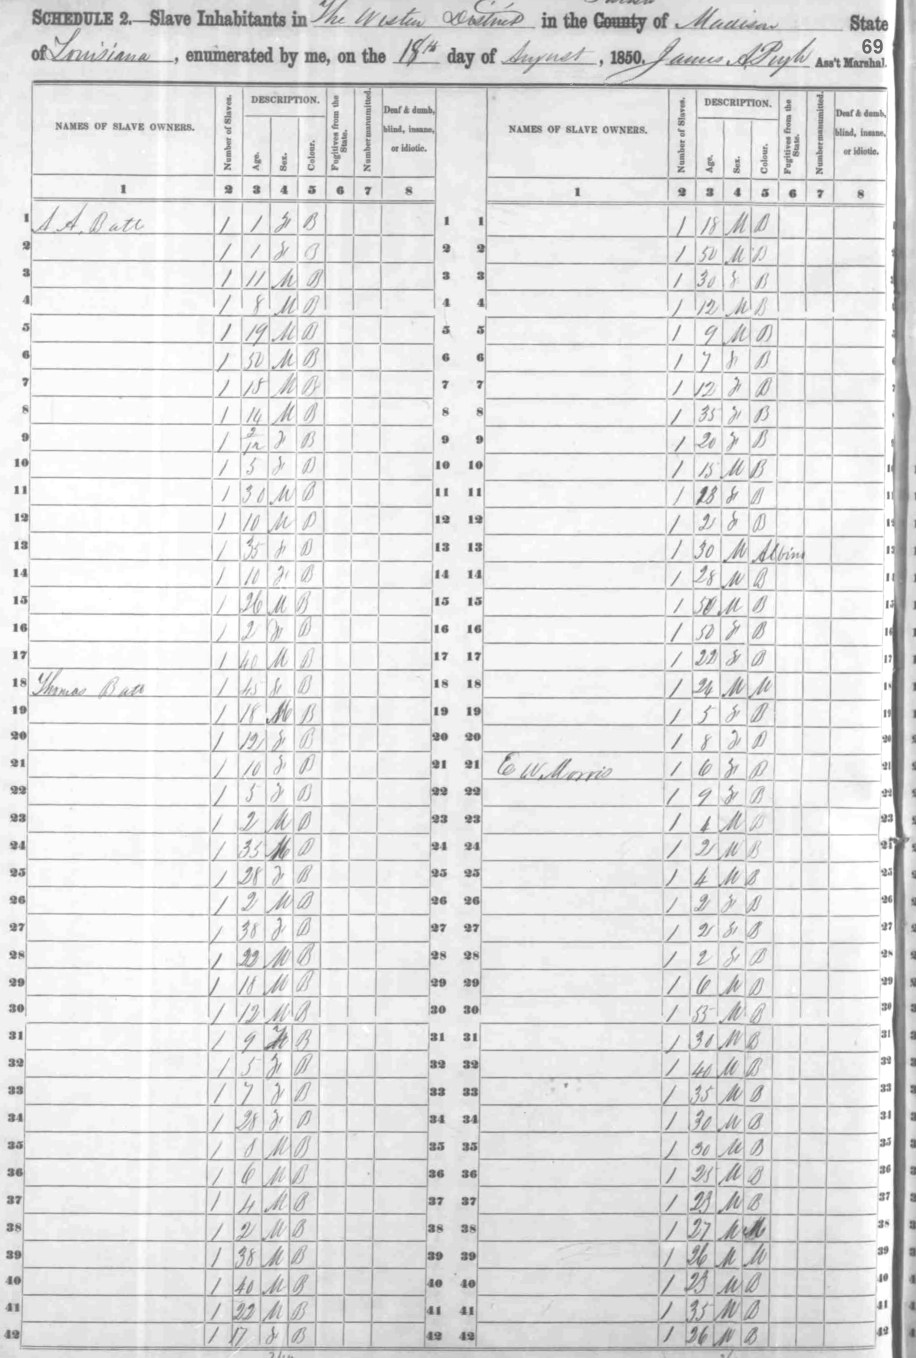 SCHEDULE 2.—Slave Inhabitants in The Western District in the County of Madison State
of Louisiana, enumerated by me, on the 18th day of August, 1850. James A Pugh Ass't Marshal.
69
NAMES OF SLAVE OWNERS. Number of Slaves. DESCRIPTION. Age. Sex. Colour. Fugitives from the State. Number manumitted. Deaf & dumb, blind, insane, or idiotic. NAMES OF SLAVE OWNERS. Number of Slaves. DESCRIPTION. Age. Sex. Colour. Fugitives from the State. Number manumitted. Deaf & dumb, blind, insane, or idiotic.
1 2 3 4 5 6 7 8 1 2 3 4 5 6 7 8
1 A. Batt 1 1 F B 1 1 1 18 M B
2 1 1 F B 2 2 1 50 M B
3 1 11 M B 3 3 1 30 F B
4 1 8 M B 4 4 1 12 M B
5 1 19 M B 5 5 1 9 M B
6 1 50 M B 6 6 1 7 F B
7 1 18 M B 7 7 1 12 F B
8 1 14 M B 8 8 1 35 F B
9 1 2/12 F B 9 9 1 20 F B
10 1 5 F B 10 10 1 15 M B
11 1 30 M B 11 11 1 28 F B
12 1 10 M B 12 12 1 2 F B
13 1 35 F B 13 13 1 30 M Albino
14 1 10 F B 14 14 1 28 M B
15 1 26 M B 15 15 1 50 M B
16 1 2 F B 16 16 1 50 F B
17 1 40 M B 17 17 1 22 F B
18 Thomas Batt 1 45 F B 18 18 1 24 M M
19 1 18 M B 19 19 1 5 F B
20 1 12 F B 20 20 1 8 F B
21 1 10 F B 21 21 E W Morris 1 6 F B
22 1 5 F B 22 22 1 9 F B
23 1 2 M B 23 23 1 4 M B
24 1 35 M B 24 24 1 2 M B
25 1 28 F B 25 25 1 4 M B
26 1 2 M B 26 26 1 2 F B
27 1 38 F B 27 27 1 2 F B
28 1 22 M B 28 28 1 2 F B
29 1 18 M B 29 29 1 6 M B
30 1 12 M B 30 30 1 55 M B
31 1 9 F B 31 31 1 30 M B
32 1 5 F B 32 32 1 40 M B
33 1 7 F B 33 33 1 35 M B
34 1 28 F B 34 34 1 30 M B
35 1 8 M B 35 35 1 30 M B
36 1 6 M B 36 36 1 25 M B
37 1 4 M B 37 37 1 23 M B
38 1 2 M B 38 38 1 27 M M
39 1 38 M B 39 39 1 26 M M
40 1 40 M B 40 40 1 23 M B
41 1 22 M B 41 41 1 35 M B
42 1 17 F B 42 42 1 26 M B